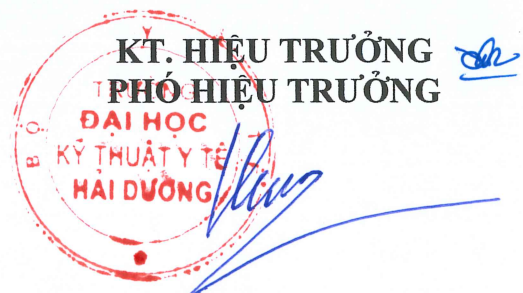 KT. HIỆU TRƯỞNG
PHÓ HIỆU TRƯỞNG
TRƯỜNG
ĐẠI HỌC
KỸ THUẬT Y TẾ
HẢI DƯƠNG
BỘ Y